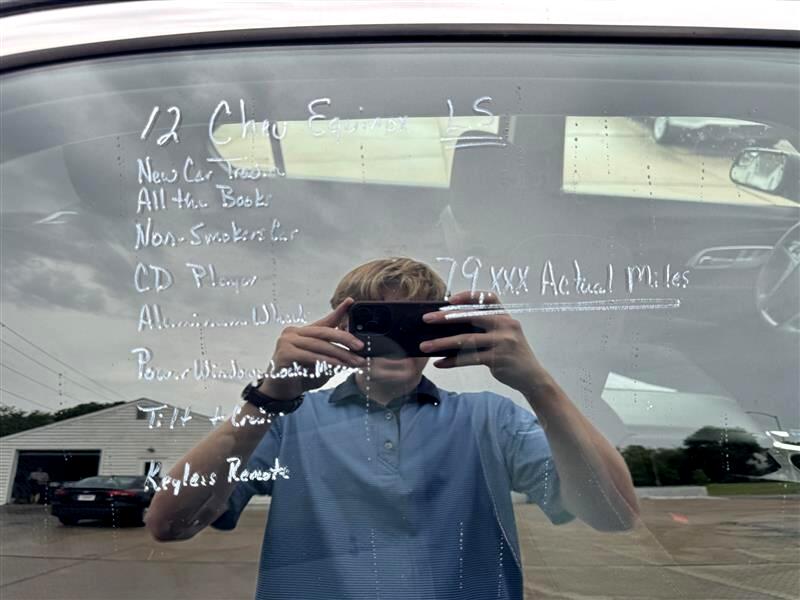 12 Chev Equinox LS
New Car Trade in
All the Books
Non-Smokers Car
CD Player
79,xxx Actual Miles
Aluminum Wheels
Power Windows, Locks, Mirrors
Tilt + Cruise
Keyless Remote